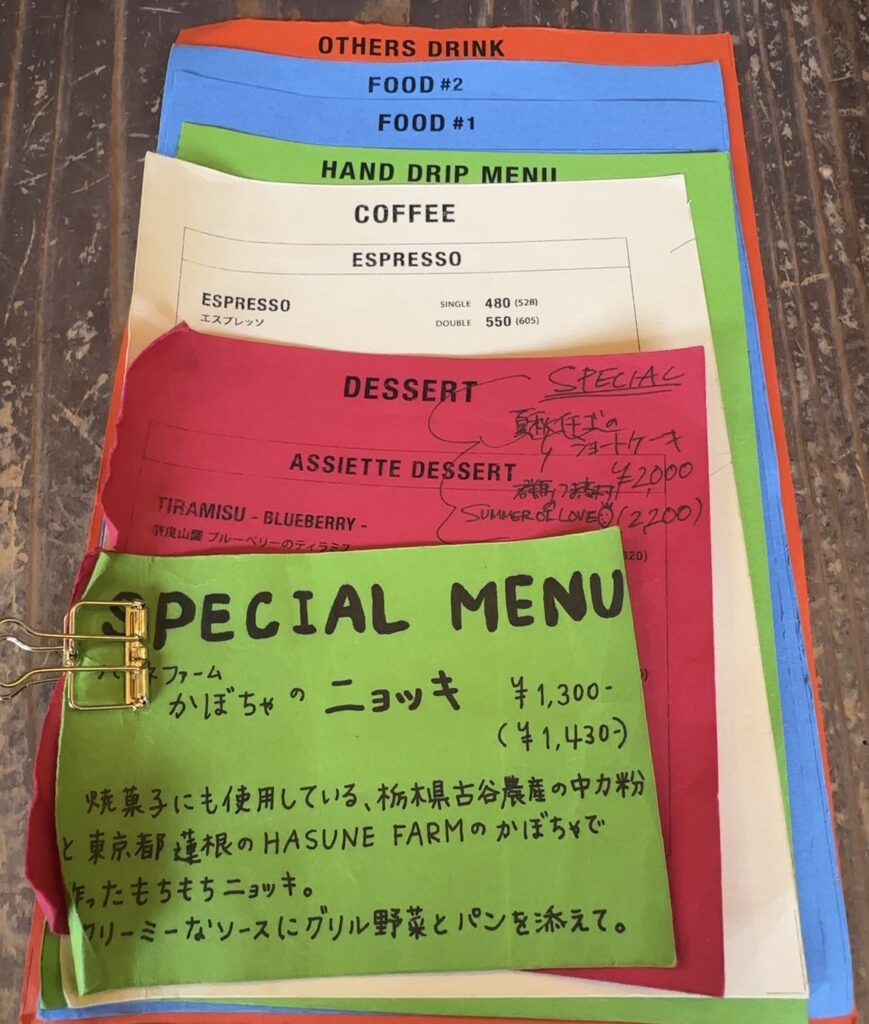 OTHERS DRINK
FOOD #2
FOOD #1
HAND DRIP MENU
COFFEE
ESPRESSO
ESPRESSO SINGLE 480 (528)
エスプレッソ DOUBLE 550 (605)
DESSERT
SPECIAL
ショートケーキ
¥2,000
SUMMER OF LOVE (2,200)
ASSIETTE DESSERT
TIRAMISU - BLUEBERRY -
ブルーベリーのティラミス
SPECIAL MENU
ファーム
かぼちゃの ニョッキ ¥1,300-
(¥1,430-)
焼菓子にも使用している、栃木県古谷農産の中力粉
と東京都蓮根のHASUNE FARMのかぼちゃで
作ったもちもちニョッキ。
クリーミーなソースにグリル野菜とパンを添えて。